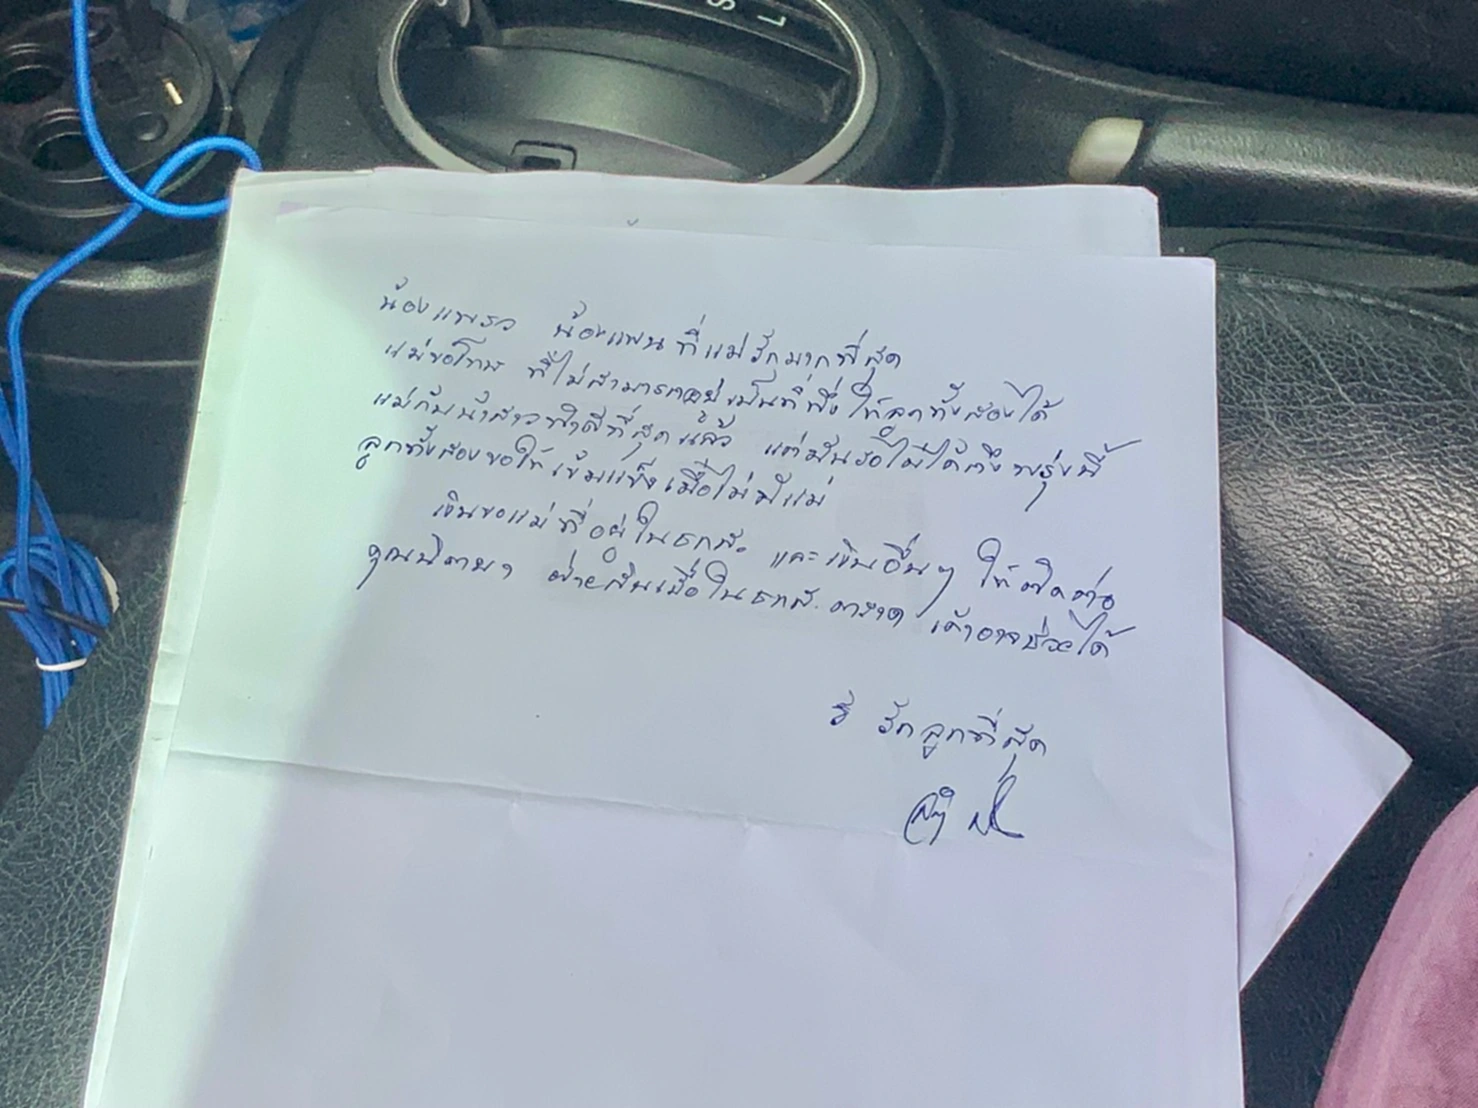 S L
น้องแพรว น้องแพน ที่แม่รักมากที่สุด
แม่ขอโทษ ที่ไม่สามารถอยู่เป็นที่พึ่ง ให้ลูกทั้งสองได้
แม่กับน้าสาวทำดีที่สุดแล้ว แต่มันรอไม่ได้ถึงพรุ่งนี้
ลูกทั้งสองขอให้เข้มแข็งเมื่อไม่มีแม่
เงินของแม่ที่อยู่ในธกส. และเงินอื่นๆ ให้ติดต่อ
คุณนิตยา ฝ่ายสินเชื่อในธกส. ตราด เค้าอาจช่วยได้
รักลูกที่สุด